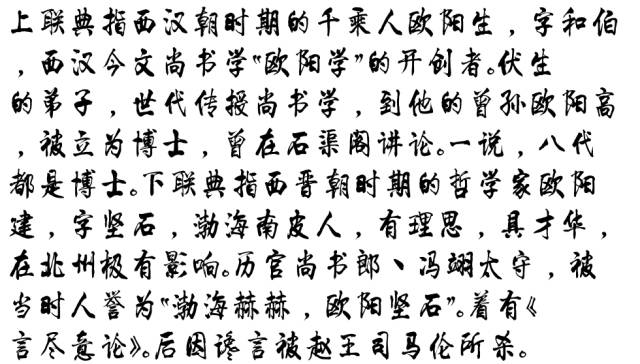 上联典指西汉朝时期的千乘人欧阳生，字和伯
，西汉今文尚书学“欧阳学”的开创者。伏生
的弟子，世代传授尚书学，到他的曾孙欧阳高
，被立为博士，曾在石渠阁讲论。一说，八代
都是博士。下联典指西晋朝时期的哲学家欧阳
建，字坚石，渤海南皮人，有理思，具才华，
在北州极有影响。历官尚书郎、冯翊太守，被
当时人誉为“渤海赫赫，欧阳坚石”。着有《
言尽意论》。后因谗言被赵王司马伦所杀。